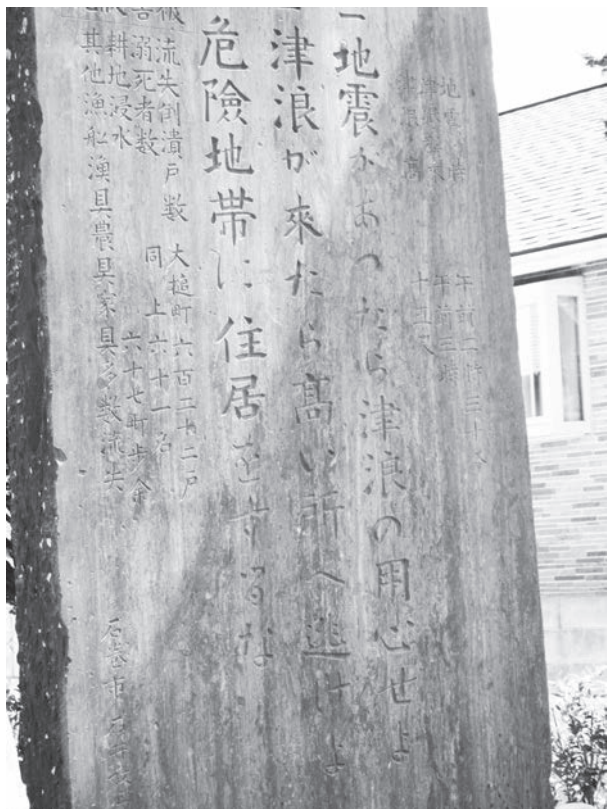 地震の時 午前二時三十分
津浪襲来 午前三時
津浪の高 十五尺
一地震があつたら津浪の用心せよ
一津浪が來たら高い所へ逃げよ
危險地帯に住居をするな
被 流失倒潰戸数 大槌町六百二十二戸
害 溺死者数 同上六十一名
耕地浸水 六十七町歩余
其他漁船漁具農具家具多数流失
石巻市